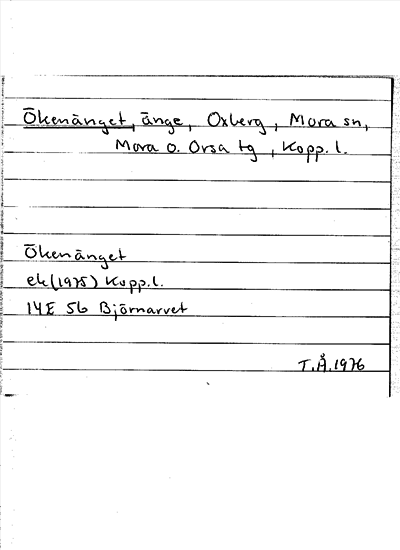 Ökenänget, änge, Oxberg, Mora sn,
Mora o. Orsa tg, Kopp. l.
Ökenänget
ek (1975) Kopp.l.
14E 5b Björnarvet
T.Å. 1976